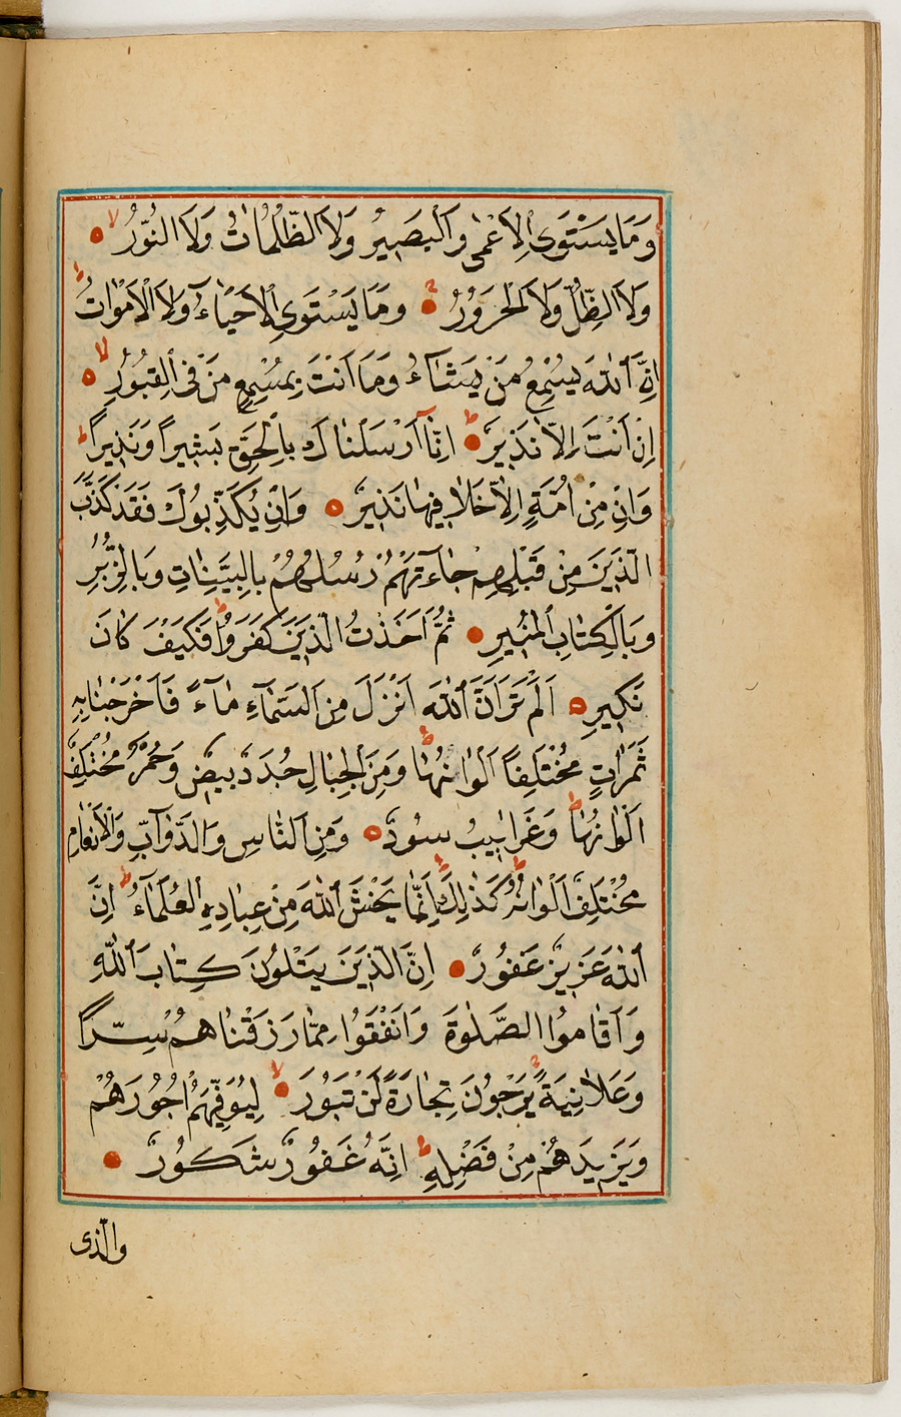 وَمَا يَسْتَوِى الْاَعْمٰى وَالْبَصِيرُ وَلَا الظُّلُمَاتُ وَلَا النُّورُ
وَلَا الظِّلُّ وَلَا الْحَرُورُ وَمَا يَسْتَوِى الْاَحْيَاءُ وَلَا الْاَمْوَاتُ
اِنَّ اللّٰهَ يُسْمِعُ مَنْ يَشَاءُ وَمَا اَنْتَ بِمُسْمِعٍ مَنْ فِى الْقُبُورِ
اِنْ اَنْتَ اِلَّا نَذِيرٌ اِنَّا اَرْسَلْنَاكَ بِالْحَقِّ بَشِيرًا وَنَذِيرًا
وَاِنْ مِنْ اُمَّةٍ اِلَّا خَلَا فِيهَا نَذِيرٌ وَاِنْ يُكَذِّبُوكَ فَقَدْ كَذَّبَ
الَّذِينَ مِنْ قَبْلِهِمْ جَاءَتْهُمْ رُسُلُهُمْ بِالْبَيِّنَاتِ وَبِالزُّبُرِ
وَبِالْكِتَابِ الْمُنِيرِ ثُمَّ اَخَذْتُ الَّذِينَ كَفَرُوا فَكَيْفَ كَانَ
نَكِيرِ اَلَمْ تَرَ اَنَّ اللّٰهَ اَنْزَلَ مِنَ السَّمَاءِ مَاءً فَاَخْرَجْنَا بِهِ
ثَمَرَاتٍ مُخْتَلِفًا اَلْوَانُهَا وَمِنَ الْجِبَالِ جُدَدٌ بِيضٌ وَحُمْرٌ مُخْتَلِفٌ
اَلْوَانُهَا وَغَرَابِيبُ سُودٌ وَمِنَ النَّاسِ وَالدَّوَابِّ وَالْاَنْعَامِ
مُخْتَلِفٌ اَلْوَانُهُ كَذٰلِكَ اِنَّمَا يَخْشَى اللّٰهَ مِنْ عِبَادِهِ الْعُلَمَاءُ اِنَّ
اللّٰهَ عَزِيزٌ غَفُورٌ اِنَّ الَّذِينَ يَتْلُونَ كِتَابَ اللّٰهِ
وَاَقَامُوا الصَّلٰوةَ وَاَنْفَقُوا مِمَّا رَزَقْنَاهُمْ سِرًّا
وَعَلَانِيَةً يَرْجُونَ تِجَارَةً لَنْ تَبُورَ لِيُوَفِّيَهُمْ اُجُورَهُمْ
وَيَزِيدَهُمْ مِنْ فَضْلِهِ اِنَّهُ غَفُورٌ شَكُورٌ
والّذى